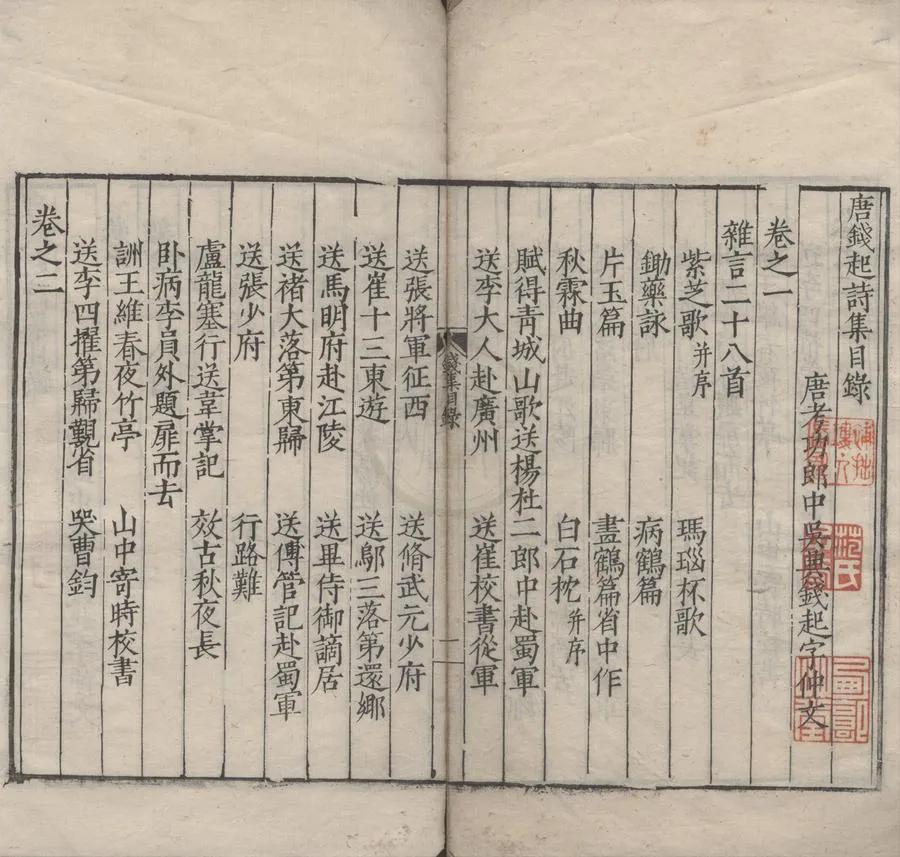 唐錢起詩集目錄
唐考功郎中吳興錢起字仲文
卷之一
雜言二十八首
紫芝歌并序 瑪瑙杯歌
鋤藥詠 病鶴篇
片玉篇 畫鶴篇省中作
秋霖曲 白石枕并序
賦得青城山歌送楊杜二郎中赴蜀軍
送李大人赴廣州 送崔校書從軍
錢集目錄 一
送張將軍征西 送脩武元少府
送崔十三東遊 送鄔三落第還鄉
送馬明府赴江陵 送畢侍御謫居
送褚大落第東歸 送傅管記赴蜀軍
送張少府 行路難
盧龍塞行送韋掌記 效古秋夜長
卧病李員外題扉而去
詶王維春夜竹亭 山中寄時校書
送李四擢第歸覲省 哭曹鈞
卷之二